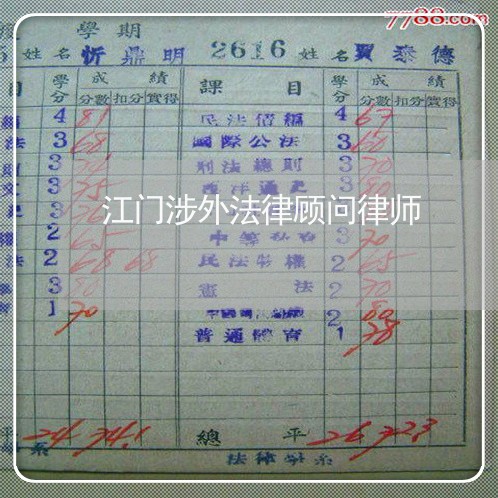 7788.com
學期
姓名 忻鼎明 2616 姓名 賈泰德
目 學分 成績 課目 學分 成績
分數 扣分 實得 分數 扣分 實得
4 81 民法債編 4 67
法 3 68 國際公法 3 60
3 刑法總則 3 70
3 75 西洋通史 3 80
江门涉外法律顾问律师
2 65 3 70
法 2 68 68 民法物權 2 65
3 80 憲法 2 70
1 70 2 80
普通體育 1 78
平 24 74.1 總平 26 72.3
系 法律學系